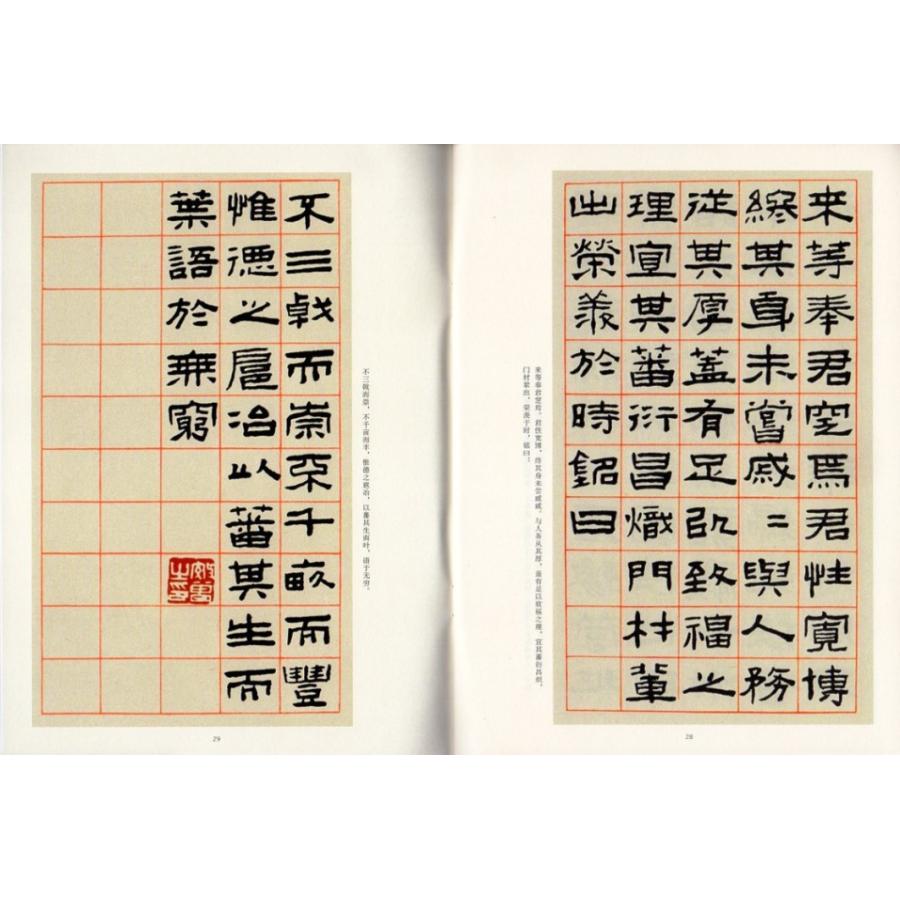 来等奉君窆焉君性寬博
終其身未嘗戚〻與人務
從其厚蓋有足以致福之
理宜其蕃衍昌熾門材輩
出榮羨於時銘曰
来等奉君窆焉。君性宽博，终其身未尝戚戚，与人务从其厚，盖有足以致福之理。宜其蕃衍昌炽，
门材辈出，荣羡于时，铭曰：
28
不三戟而崇不千畝而豐
惟德之扈冶以蕃其生而
葉語於無窮
不三戟而崇，不千亩而丰，惟德之扈冶，以蕃其生而叶，语于无穷。
29